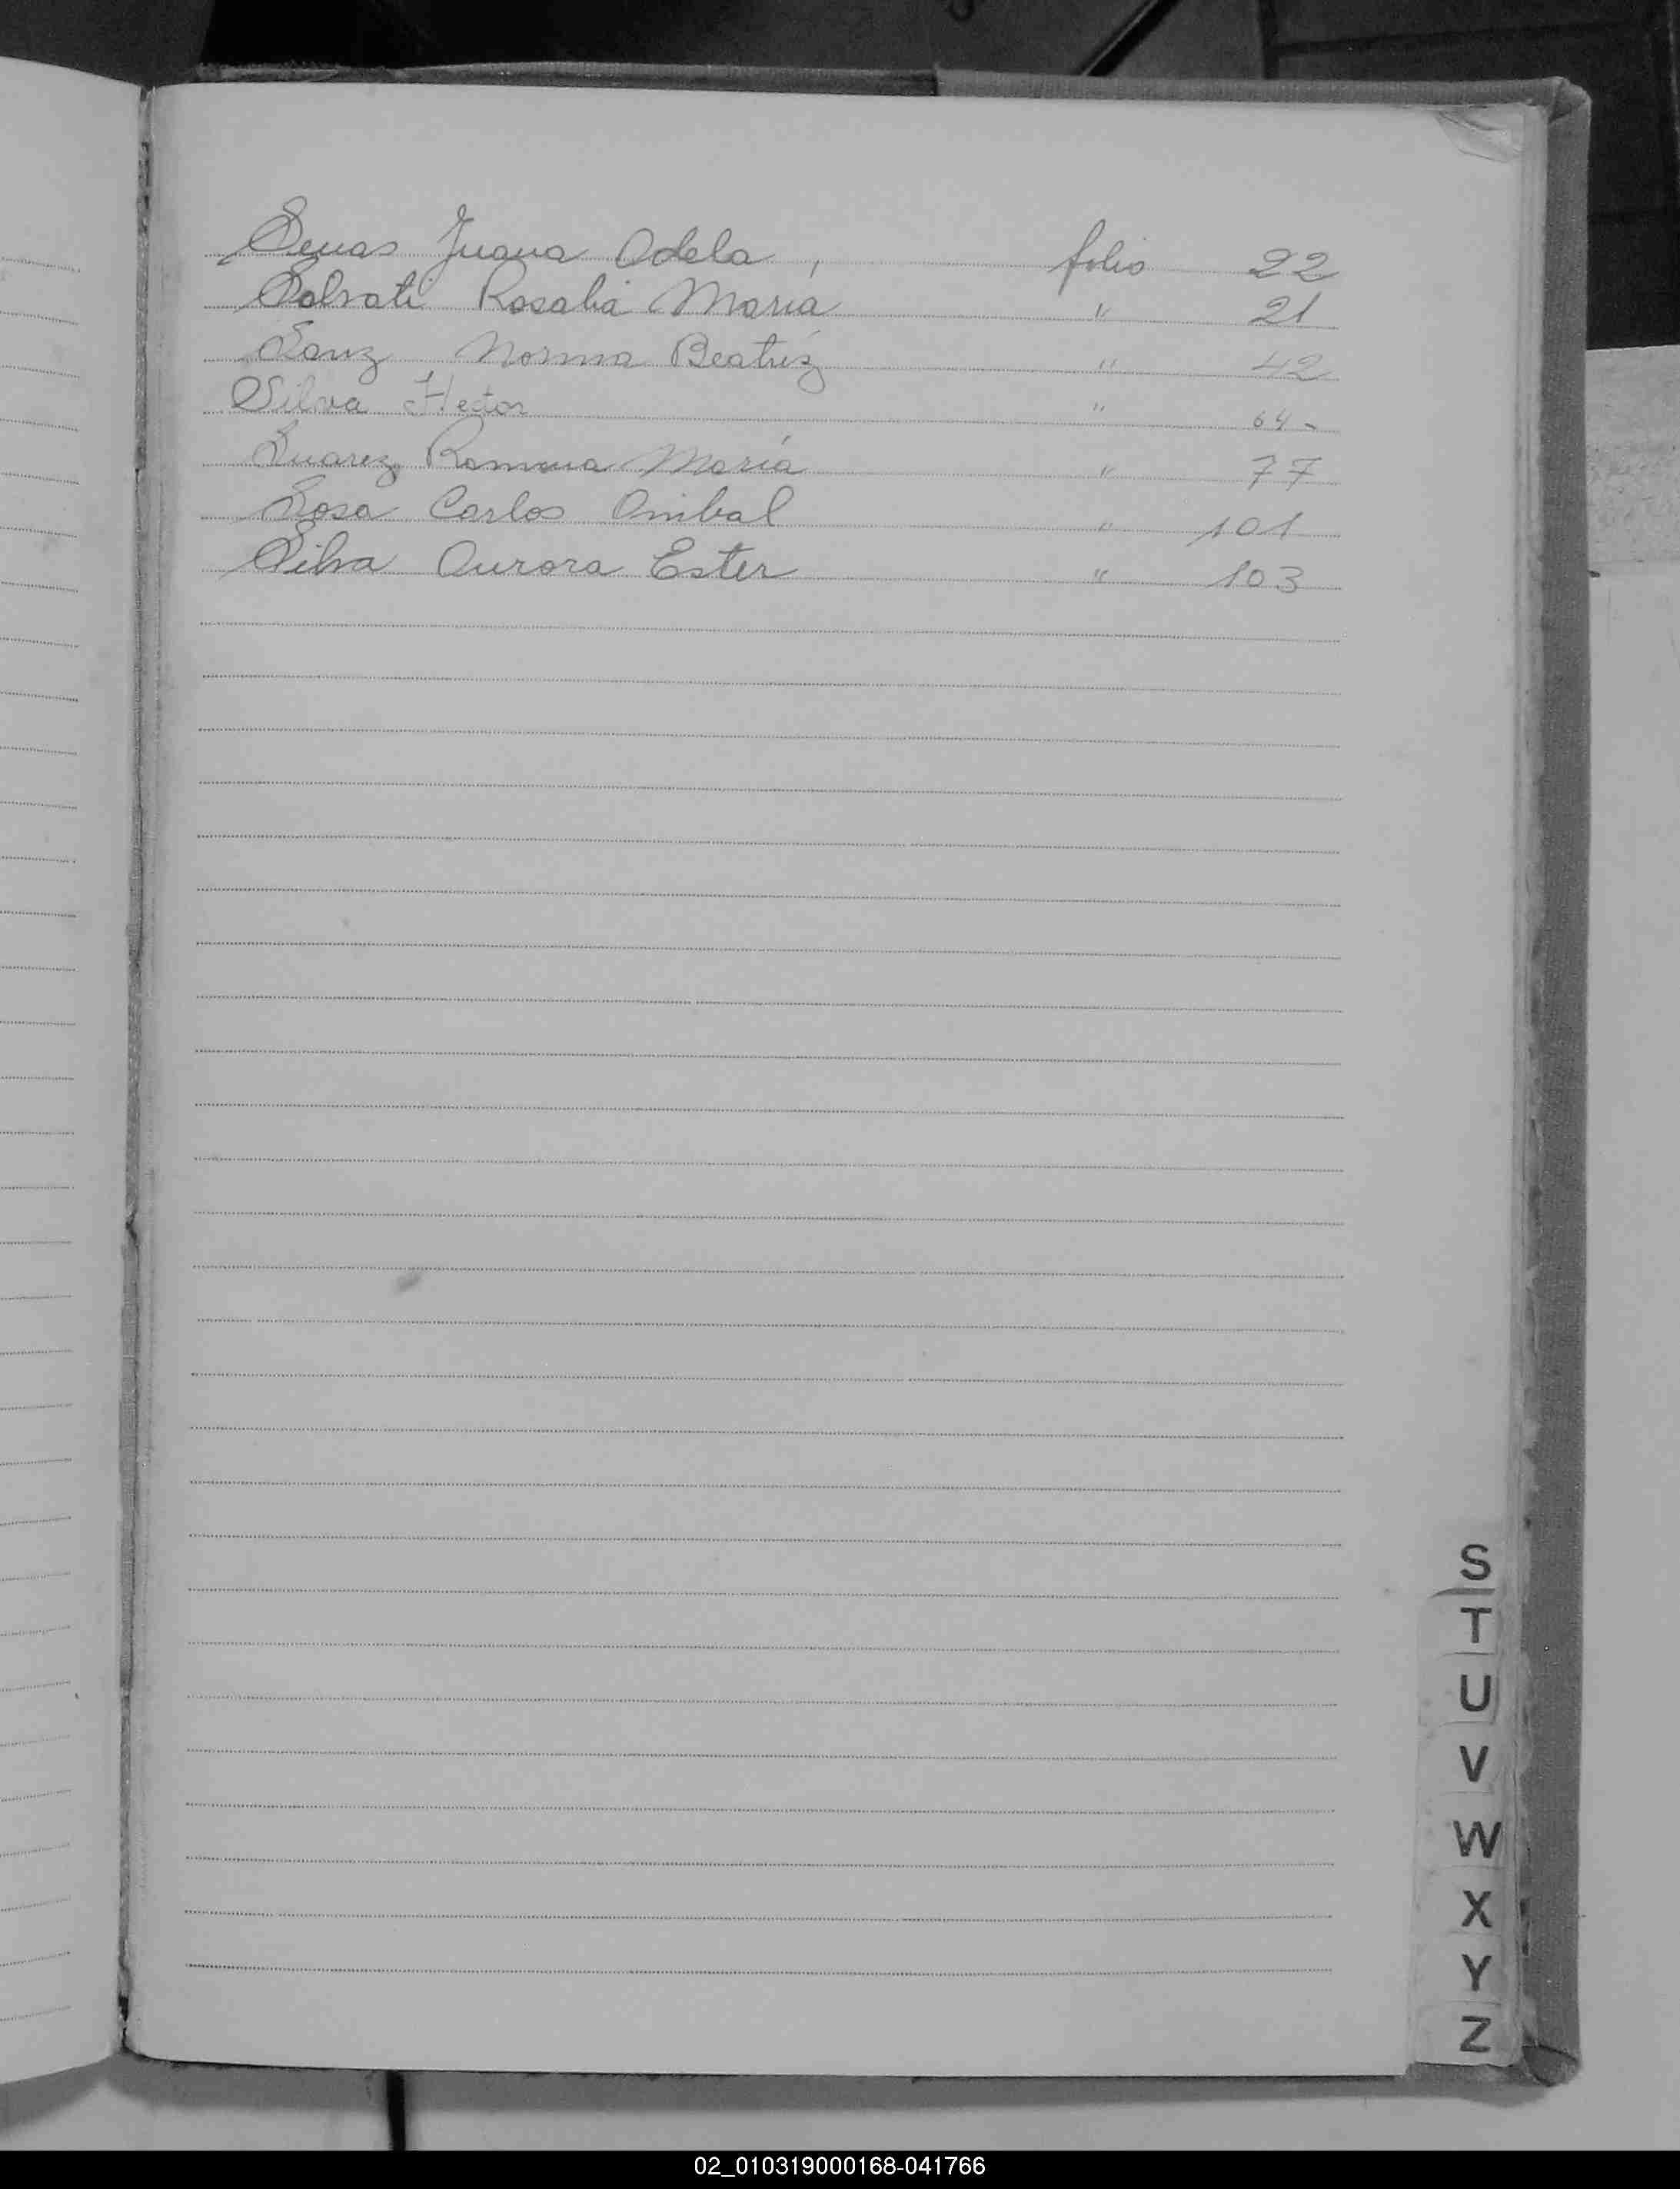 Senas Juana Adela, folio 22
Salvati Rosalia María " 21
Sanz Norma Beatríz " 42
Silva Hector " 64-
Suarez Ramona María " 77
Sosa Carlos Anibal " 101
Silva Aurora Ester " 103
S
T
U
V
W
X
Y
Z
02_010319000168-041766